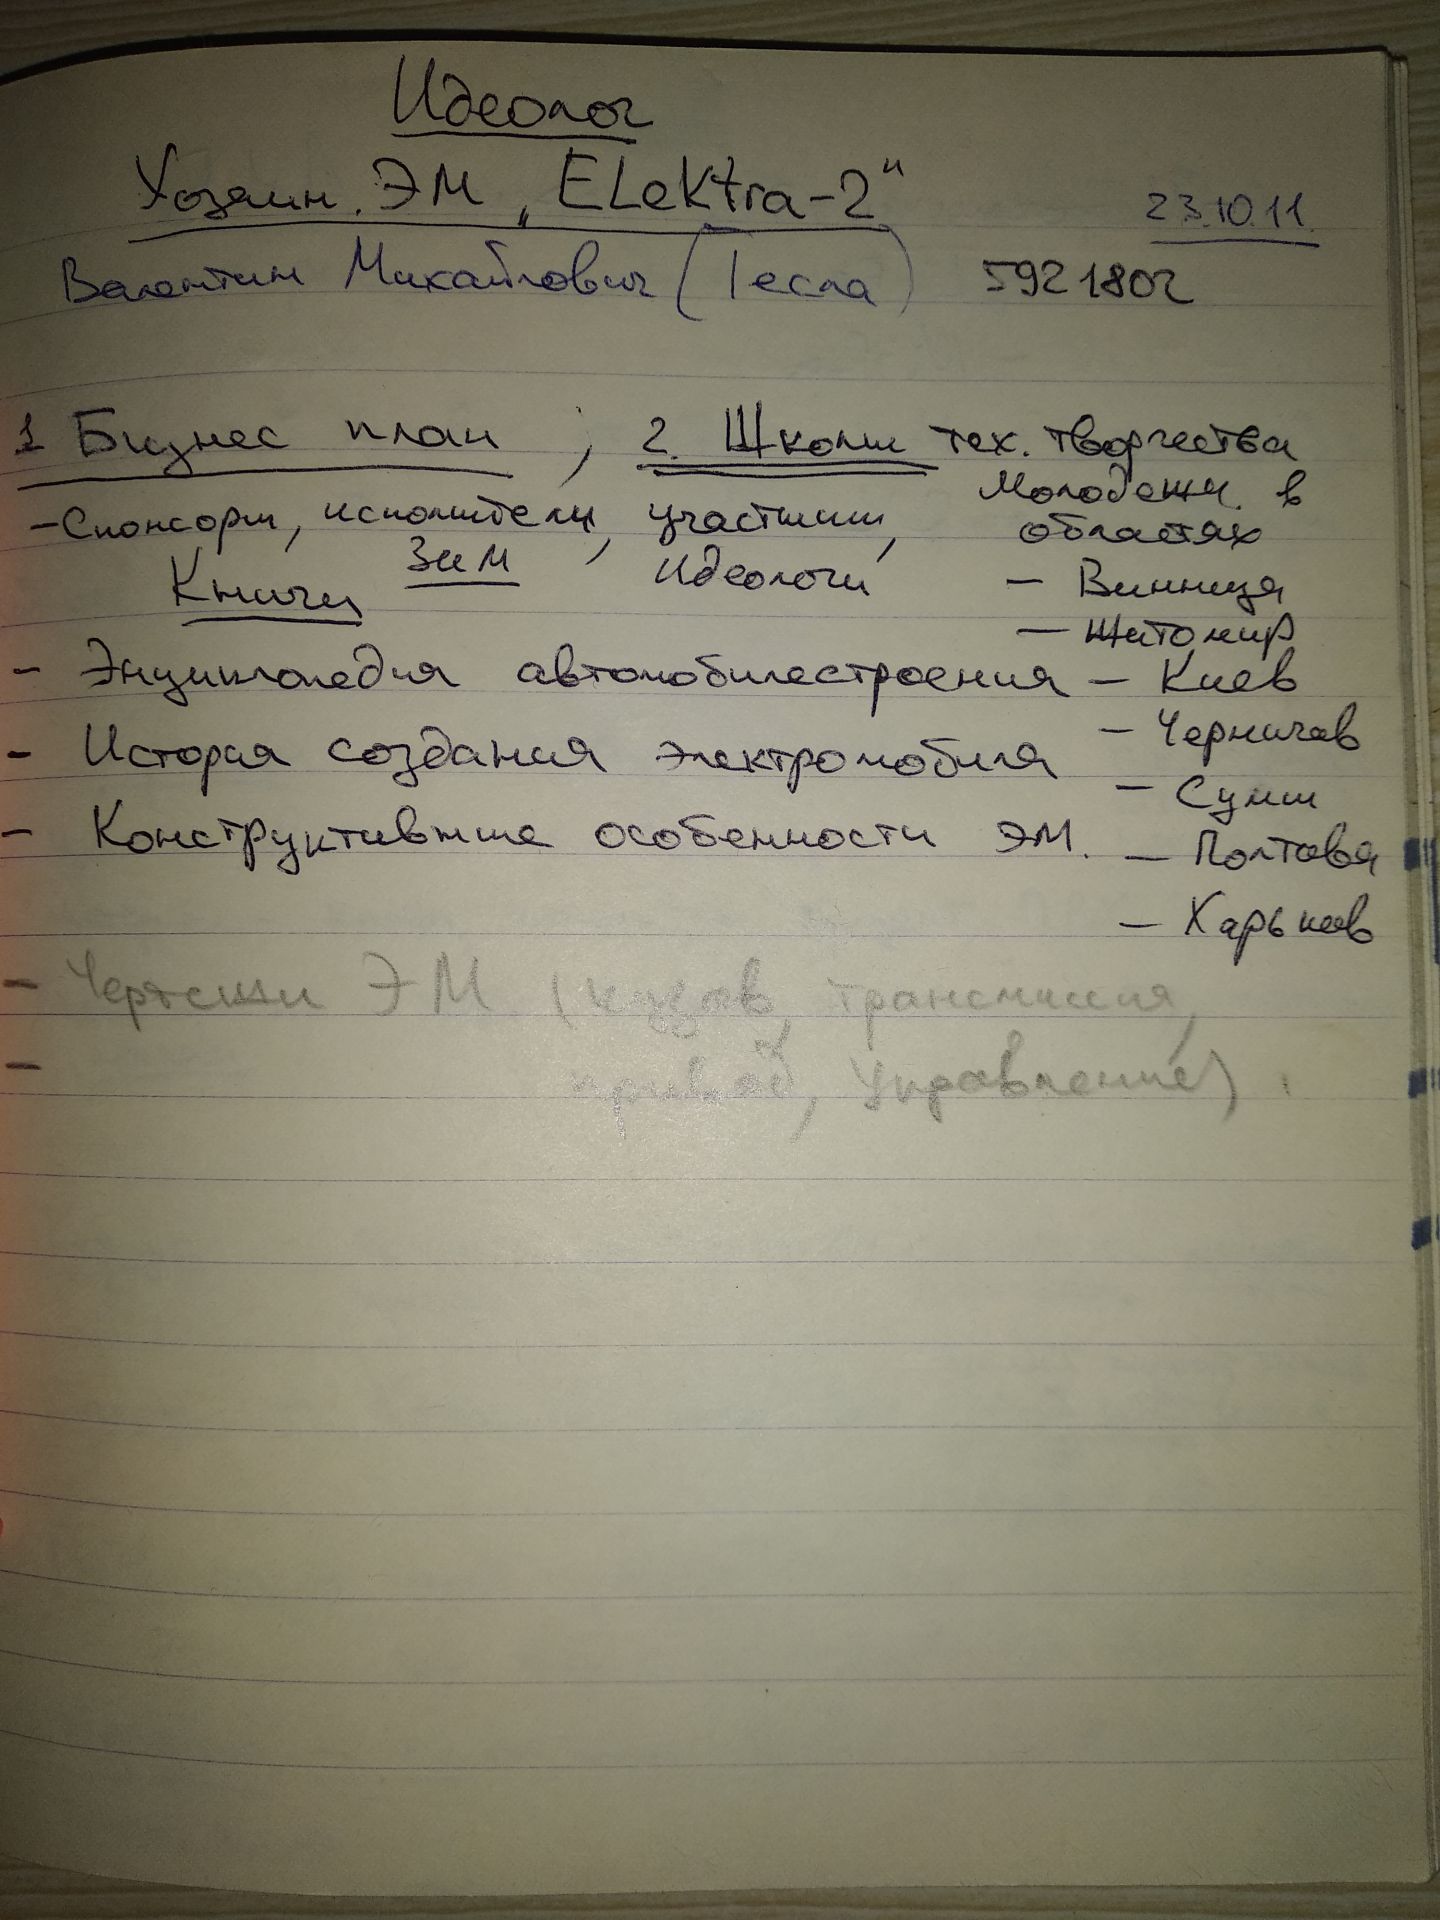 Идеолог
Хозяин. ЭМ „ELektra-2"
23.10.11.
Валентин Михайлович (Тесла) 5921802
1 Бизнес план ; 2. Школы тех. творчества
Молодежи. в
областях
- Спонсоры, исполнители, участники,
идеологи
- Винница
- Житомир
Книги
- Энциклопедия автомобилестроения
- Киев
- Чернигов
- История создания электромобиля
- Сумы
- Конструктивные особенности ЭМ.
- Полтава
- Харьков
- Чертежи ЭМ (кузов, трансмиссия,
- привод, управление)